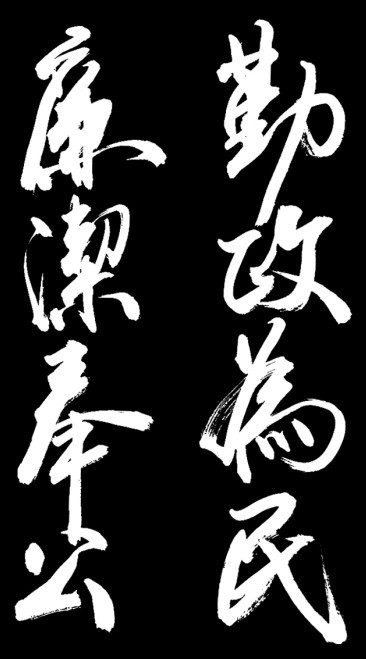 勤政為民
廉潔奉公